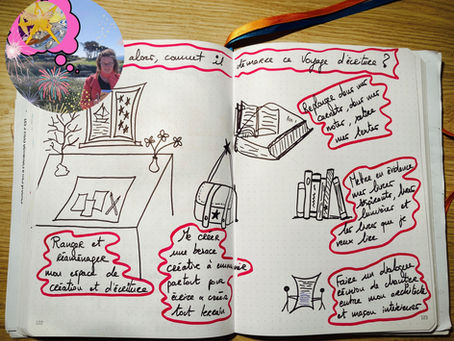 alors, comment il démarre ce voyage d'écriture ?
Ranger et
réaménager
mon espace de
création et d'écriture
Me créer
une besace
créative à emmener
partout pour
écrire & créer
tout terrain
Replonger dans mes
carnets, dans mes
notes, relire
mes textes
Mettre en évidence
mes livres
inspirants, livres
lumières et
les livres que je
veux lire
Faire un dialogue
réunion de chantier
entre mon architecte
et maçon intérieurs
122
123